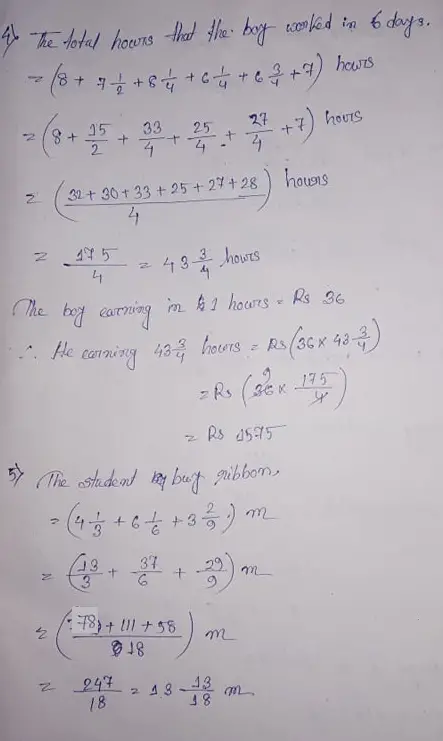 4) The total hours that the boy worked in 6 days.
= (8 + 7 1/2 + 8 1/4 + 6 1/4 + 6 3/4 + 7) hours
= (8 + 15/2 + 33/4 + 25/4 + 27/4 + 7) hours
= (32+30+33+25+27+28 / 4) hours
= 175/4 = 43 3/4 hours
The boy earning in 1 hours = Rs 36
∴ He earning 43 3/4 hours = Rs (36 × 43 3/4)
= Rs (36 × 175/4)
= Rs 1575
5) The student buy ribbon.
= (4 1/3 + 6 1/6 + 3 2/9) m
= (13/3 + 37/6 + 29/9) m
= (78 + 111 + 58 / 18) m
= 247/18 = 13 13/18 m